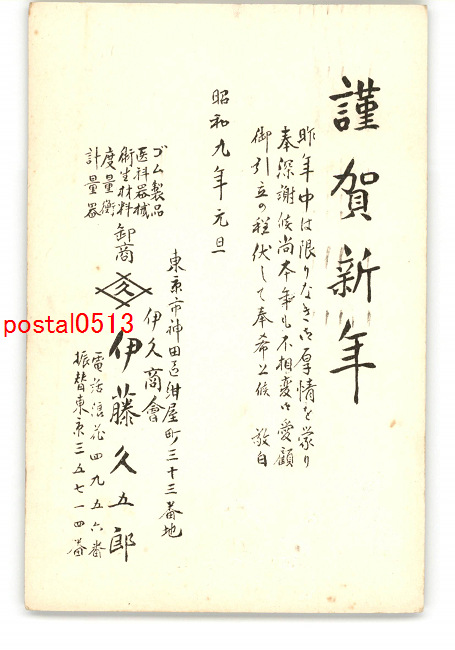 謹賀新年
昨年中は限りなき御厚情を蒙り
奉深謝候尚本年も不相変御愛顧
御引立の程伏して奉希上候 敬白
昭和九年元旦
ゴム製品
医科器械
衛生材料
度量衡
計量器
卸商
久
東京市神田区紺屋町三十三番地
伊久商會
伊藤久五郎
電話浪花四九五六番
振替東京三五七一四番
postal0513